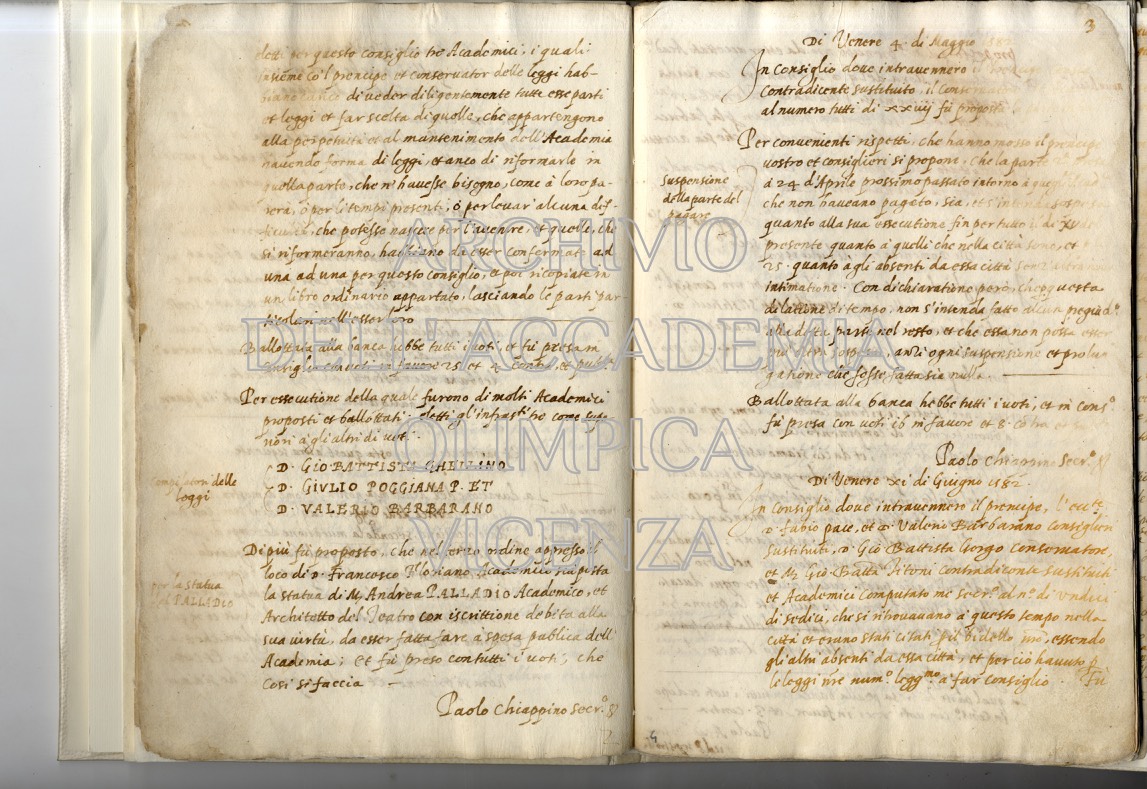 eletti per questo consiglio tre Academici, i quali
insieme co'l prencipe et conservator delle leggi hab-
biano carico di veder diligentemente tutte esse parti
et leggi et far scolta di quelle, che appartengono
alla perpetuità et al mantenimento dell'Academia
havendo forma di leggi et anco di riformarle in
quella parte, che n'havesse bisogno, come à loro pa-
rerà, ò per li tempi presenti, ò per levar' alcuna dif-
ficultà, che potesse nascere per l'avenire, et quelle, che
si riformeranno, habbiano da esser confermate ad
una ad una per questo consiglio, et poi ricopiate in
un libro ordinario appartato, lasciando le parti par-
ticolari nell'esser loro
Ballottata alla banca hebbe tutti i voti, et fù presa in
consiglio con voti in favore 25 et 2 contra, et
Per essecutione della quale furono di molti Academici
proposti et ballottati: eletti gl'infrasti tre come supe-
riori à gli altri di voti.
Compilatori delle
leggi
D. GIO BATTISTA GHELLINO
D. GIULIO POGGIANA P. ET
D. VALERIO BARBARANO
per la statua
del PALLADIO
Di più fù proposto, che nel terzo ordine appresso il
loco di D. Francesco Floriano Academico sia posta
la statua di M. Andrea PALLADIO Academico, et
Architetto del Teatro con iscrittione debita alla
sua virtù, da esser fatta fare à spesa publica dell'
Academia; et fù preso con tutti i voti, che
Così si faccia
Paolo Chiappino Secr.º
2
3
Di Venere 4 di Maggio 1582
In Consiglio dove intravennero
Contradicente sustituto, il Conservator
al numero tutti di XXVIIIJ fù proposto
Suspensione
della parte del
pagare
Per convenienti rispetti, che hanno mosso il prencipe
vostro et consiglieri si propone, che la parte
à 24 d'Aprile prossimo passato intorno à quegli
che non haveano pagato, sia, et s'intenda sospesa
quanto alla sua essecutione fin per tutto li
presente quanto à quelli che nella città sono, et
25. quanto agli absenti da essa città senz'altra
intimatione. Con dichiaratione però, che per questa
dilatione di tempo, non s'intenda fatto alcun
alla detta parte nel resto, et che essa non possa esser
più oltra sospesa, anzi ogni suspensione et prolon-
gatione che fosse fatta sia nulla.
Ballottata alla banca hebbe tutti i voti, et in cons.º
fù presa con voti 16 in favore et 8 contra
Paolo Chiappino Secr.º
Di Venere XI di Giugno 1582.
In Consiglio dove intravennero il prencipe, l'ecc.te
D. Fabio pace, et D. Valerio Barbarano consiglieri
sustituti, D. Gio Battista Gorgo conservatore,
et M. Gio. Batta Titoni contradicente sustituto
et Academici computato me Secr.º al n.º di undici
di sedici, che si ritrovavano à questo tempo nella
città et erano stati citati p il bidello nro, essendo
gli altri absenti da essa città, et perciò havuto p
le leggi nre num.º legg.mo à far consiglio. Fù
ARCHIVIO
DELL'ACCADEMIA
OLIMPICA
VICENZA